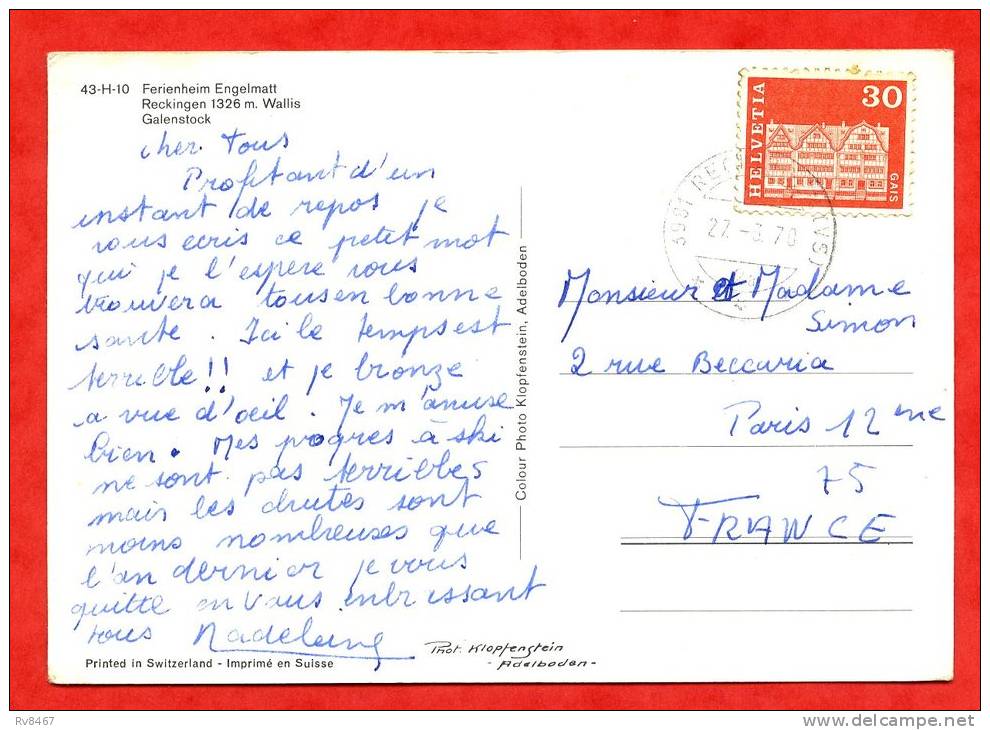 43-H-10 Ferienheim Engelmatt
Reckingen 1326 m. Wallis
Galenstock
cher tous
Profitant d'un
instant de repos je
vous ecris ce petit mot
qui je l'espere vous
trouvera tous en bonne
sante. Ici le temps est
terrible!! et je bronze
a vue d'oeil. Je m'amuse
bien. Mes progres à ski
ne sont pas terribles
mais les chutes sont
moins nombreuses que
l'an dernier je vous
quitte en vous embrassant
tous
Printed in Switzerland - Imprimé en Suisse
Phot. Klopfenstein
- Adelboden -
Colour Photo Klopfenstein, Adelboden
HELVETIA
30
GAIS
3981
27.-3.70
Monsieur et Madame
Simon
2 rue Beccaria
Paris 12 eme
75
FRANCE
Rv8467
www.delcampe.net